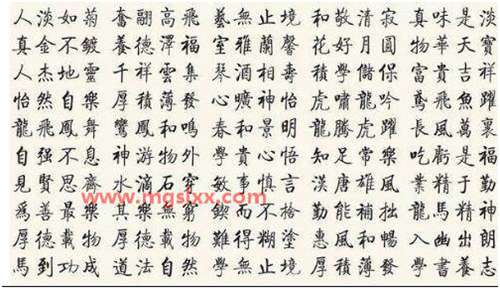 人淡如菊 奮翮高飛 藝無止境 和敬清寂 真味是淡
真金不鍍 養德澤福 室雅蘭馨 花好月圓 物華天寶
人杰地靈 千祥雲集 琴酒相壽 積學儲 富貴吉祥
怡然自樂 厚積薄發 心曠神怡 虎嘯龍吟 鳶飛魚躍
龍飛鳳舞 鸞鳳和鳴 春和景明 龍騰虎躍 長風萬裏
自强不息 神游物外 學貴心悟 知足常樂 吃虧是福
見賢思齊 水滴石穿 敏事慎言 漢唐雄風 業精于勤
www.mgslxx.com
爲善最樂 其樂無窮 鍥而不捨 勤能補拙 龍馬精神
厚德載物 難得糊塗 惠風和暢 入幽出朗
馬到功成 道法自然 學無止境 厚積薄發 學書養志